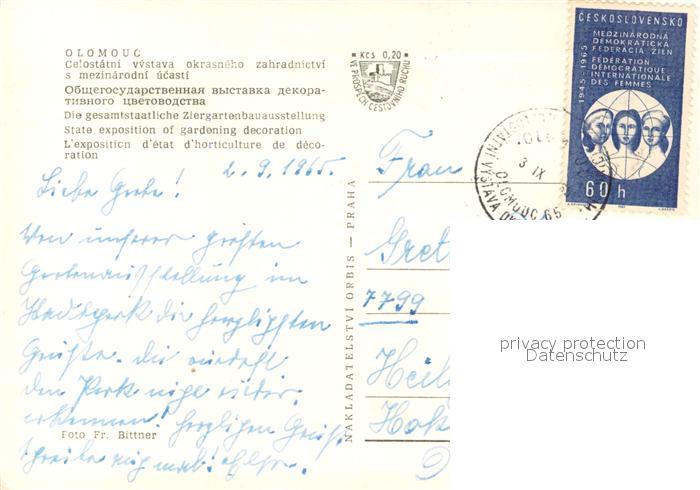 OLOMOUC
Celostátní výstava okrasného zahradnictví
s mezinárodní účastí
Общегосударственная выставка декора-
тивного цветоводства
Die gesamtstaatliche Ziergartenbauausstellung
State exposition of gardening decoration
L'exposition d'état d'horticulture de déco-
ration
Kčs 0,20
VE PROSPĚCH CESTOVNÍHO RUCHU
ČESKOSLOVENSKO
MEDZINÁRODNÁ
DEMOKRATICKÁ
FEDERÁCIA ŽIEN
FÉDÉRATION
DÉMOCRATIQUE
INTERNATIONALE
DES FEMMES
1945-1965
60 h
3 IX
OLOMOUC 65
2.9.1965.
Liebe Grete!
Von unserer großen
Gartenausstellung im
Stadtpark die herzlichsten
Grüße. Du würdest
den Park nicht wieder
erkennen! Herzlichen Gruß.
Schreibe auch mal!
Foto Fr. Bittner
NAKLADATELSTVÍ ORBIS — PRAHA
Frau
Gret
7799
Heil
privacy protection
Datenschutz